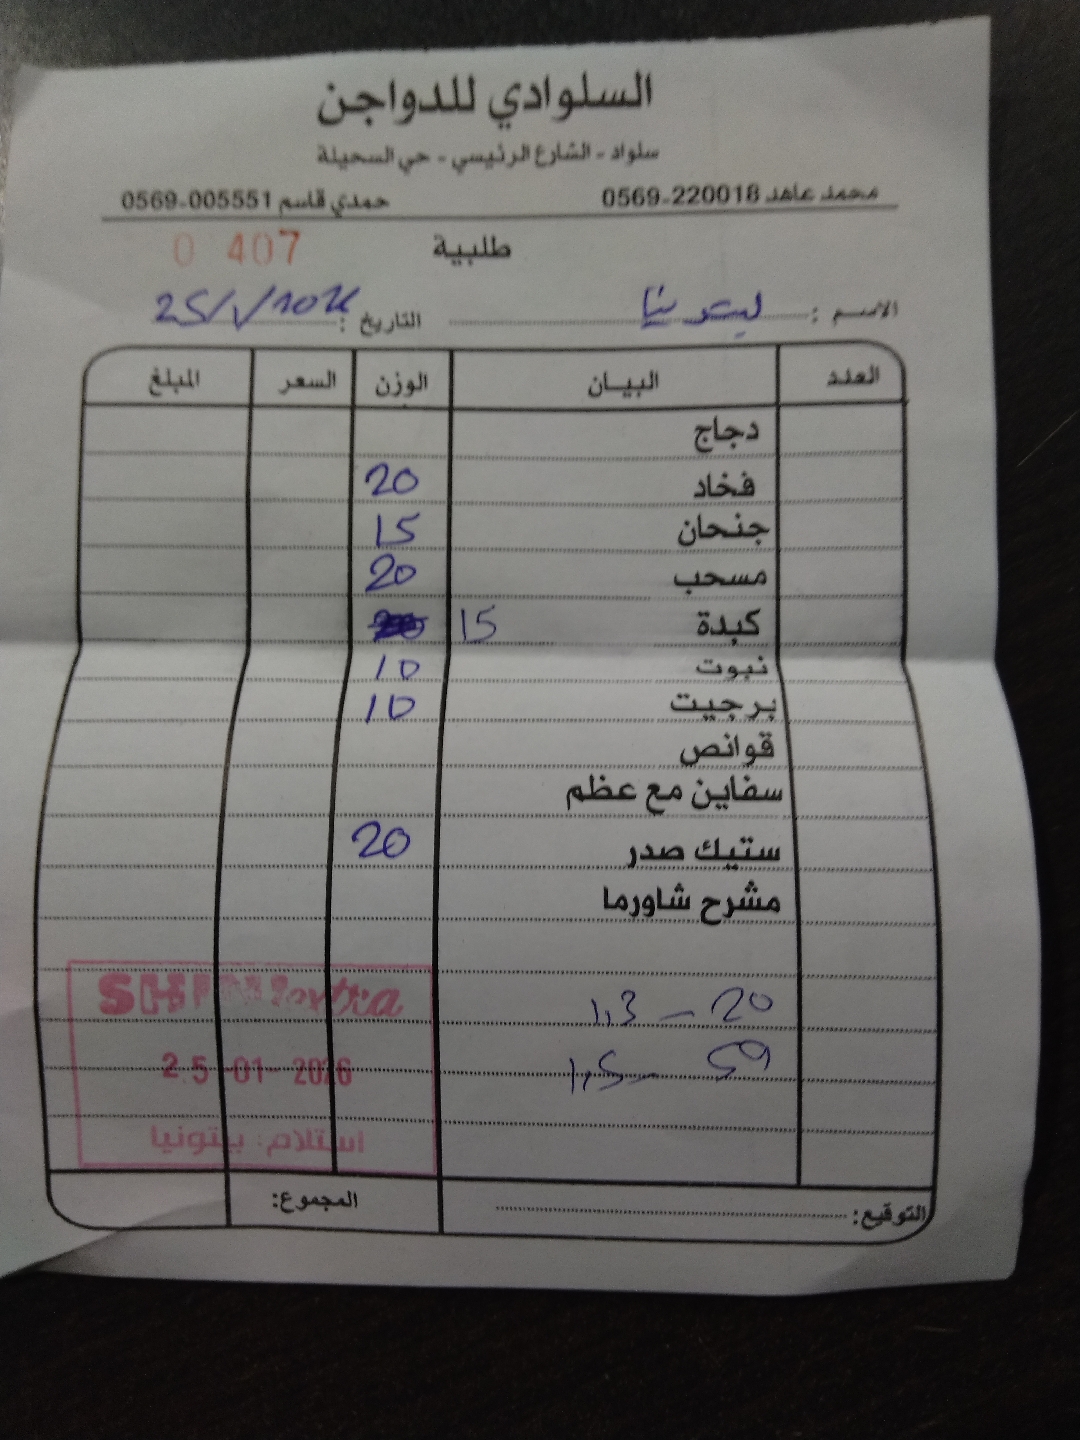 السلوادي للدواجن
سلواد - الشارع الرئيسي - حي السحيلة
محمد عاهد 0569-220018 حمدي قاسم 0569-005551
طلبية 0 407
الاسم : التاريخ : 25/1/2026
العدد البيان الوزن السعر المبلغ
دجاج
فخاد 20
جنحان 15
مسحب 20
كبدة 15
نبوت 10
برجيت 10
قوانص
سفاين مع عظم
ستيك صدر 20
مشرح شاورما
1,3 - 20
1,5 - 59
SHINI
25-01-2026
استلام: بيتونيا
التوقيع: المجموع: